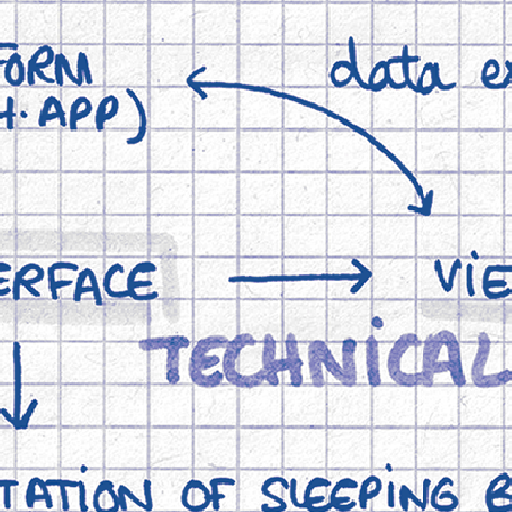 FORM
data ex
H. APP)
ERFACE
VIE
TECHNICAL
TATION OF SLEEPING B